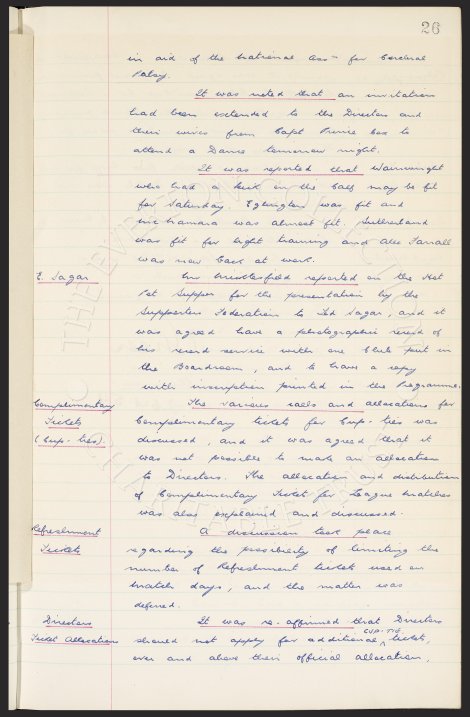 26
in aid of the National Assn for Cerebral
Palsy.
It was noted that an invitation
had been extended to the Directors and
their wives from Capt Prince Cox to
attend a Dance tomorrow night.
It was reported that Wainwright
who had a kick on the calf may be fit
for Saturday. Eglington was fit and
McNamara was almost fit. Sutherland
was fit for light training and Alec Farrall
was now back at work.
E. Sagar
Mr Micklesfield reported on the Hot
Pot Supper for the presentation by the
Supporters Federation to Ted Sagar, and it
was agreed have a photographic record of
his record service with one Club put in
the Boardroom, and to have a copy
with inscription printed in the Programme.
Complimentary
Tickets
(Cup-ties).
The various calls and allocations for
Complimentary tickets for Cup-ties was
discussed, and it was agreed that it
was not possible to make an allocation
to Directors. The allocation and distribution
of Complimentary Tickets for League matches
was also explained and discussed.
Refreshment
Tickets
A discussion took place
regarding the possibility of limiting the
number of Refreshment tickets used on
match days, and the matter was
deferred.
Directors
Ticket Allocations
It was re-affirmed that Directors
should not apply for additional CUP-TIE tickets,
over and above their official allocation,